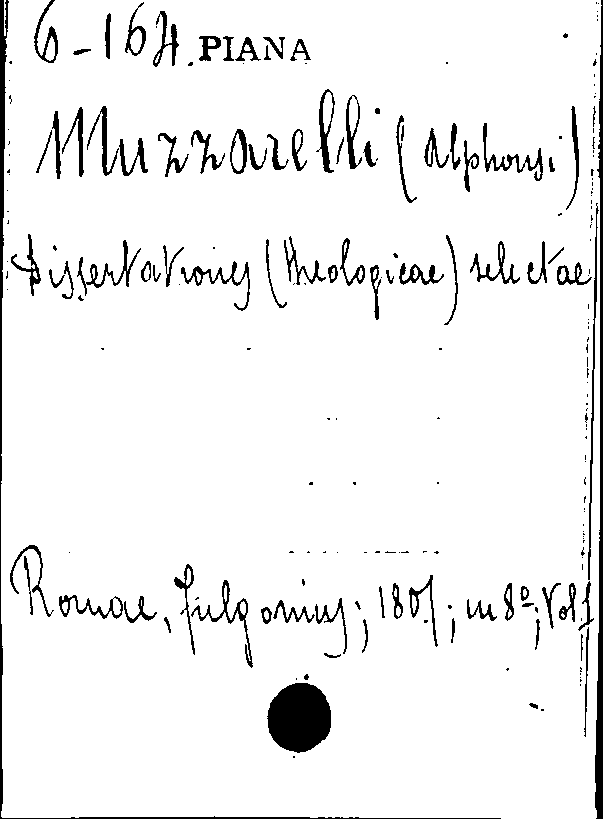 6-164. PIANA
Muzzarelli (Alphonsi)
Dissertationes (theologicae) selectae
Romae, Fulgonius; 1807; in 8º; Vol 1